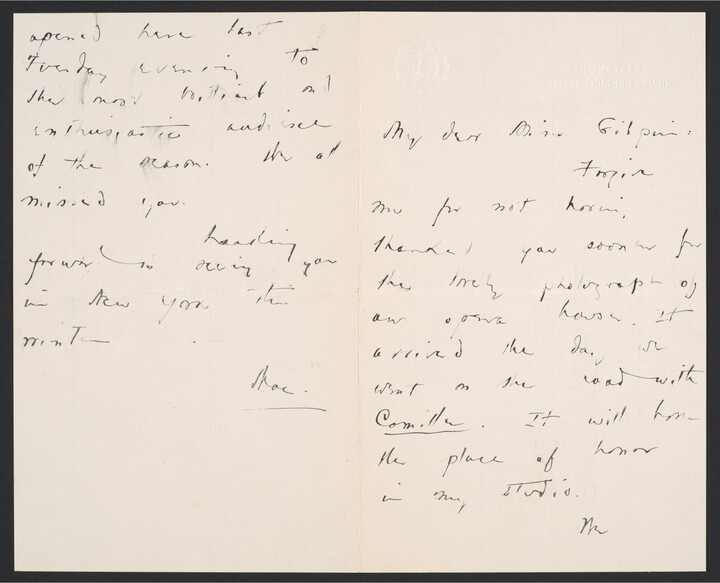 My dear Miss Gilpin:
Forgive
me for not having
thanked you sooner for
the lovely photograph of
our opera house. It
arrived the day we
went on the road with
Camille. It will have
the place of honor
in my studio.
We
opened here last
Tuesday evening to
the most brilliant and
enthusiastic audience
of the season. We all
missed you.
Looking
forward to seeing you
in New York this
winter
Mac.